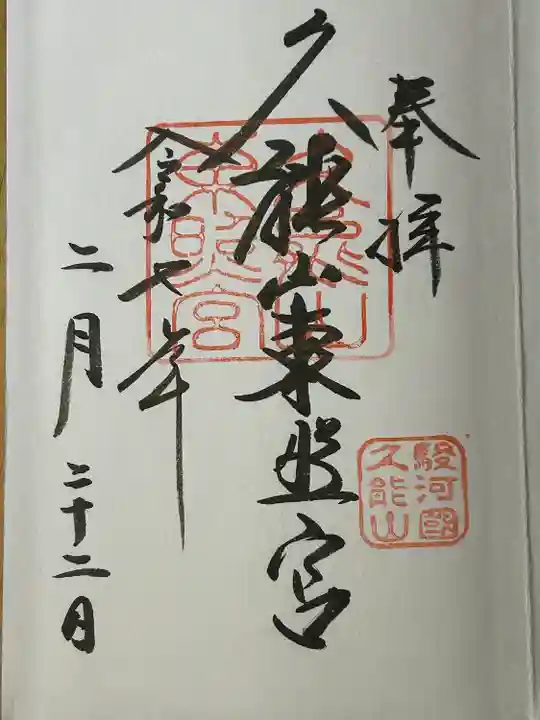 奉拝
駿河國
久能山
久能山東照宮
久能山
東照宮
令和七年
二月二十二日